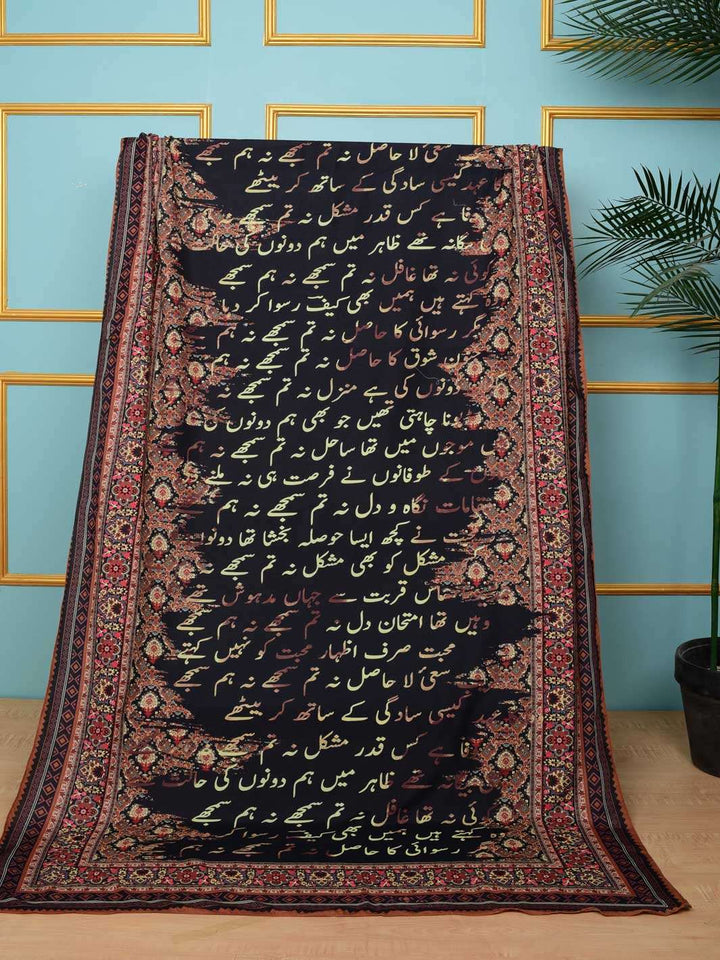 سعئ لا حاصل نہ تم سمجھے نہ ہم سمجھے
عہد کیسی سادگی کے ساتھ کر بیٹھے
ہے کس قدر مشکل نہ تم سمجھے نہ ہم
تھے ظاہر میں ہم دونوں کی حالت
کوئی نہ تھا غافل نہ تم سمجھے نہ ہم سمجھے
کہتے ہیں ہمیں بھی کیف رسوا کر دیا
رسوائی کا حاصل نہ تم سمجھے نہ ہم
شوق کا حاصل نہ تم سمجھے نہ ہم
دونوں کی ہے منزل نہ تم سمجھے نہ
چاہتی تھیں جو بھی ہم دونوں کی
موجوں میں تھا ساحل نہ تم سمجھے نہ ہم
کے طوفانوں نے فرصت ہی نہ ملنے دی
نگاہ و دل نہ تم سمجھے نہ ہم سمجھے
نے کچھ ایسا حوصلہ بخشا تھا دونوں
مشکل کو بھی مشکل نہ تم سمجھے نہ
قربت سے جہاں مدہوش تھے
وہیں تھا امتحان دل نہ تم سمجھے نہ ہم سمجھے
محبت صرف اظہار محبت کو نہیں کہتے
سعئ لا حاصل نہ تم سمجھے نہ ہم سمجھے
کیسی سادگی کے ساتھ کر بیٹھے
ہے کس قدر مشکل نہ تم سمجھے نہ
تھے ظاہر میں ہم دونوں کی حالت
کوئی نہ تھا غافل نہ تم سمجھے نہ ہم سمجھے
کہتے ہیں ہمیں بھی کیف رسوا کر
رسوائی کا حاصل نہ تم سمجھے نہ ہم